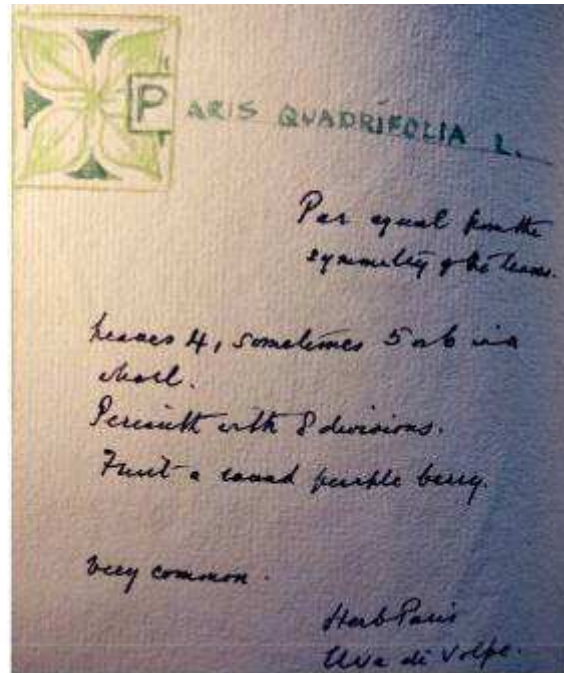 PARIS QUADRIFOLIA L.
Par equal from the
symmetry of the leaves.
Leaves 4, sometimes 5 or 6 in a
whorl.
Perianth with 8 divisions.
Fruit a round purple berry.
Very common.
Herb Paris
Uva di Volpe.